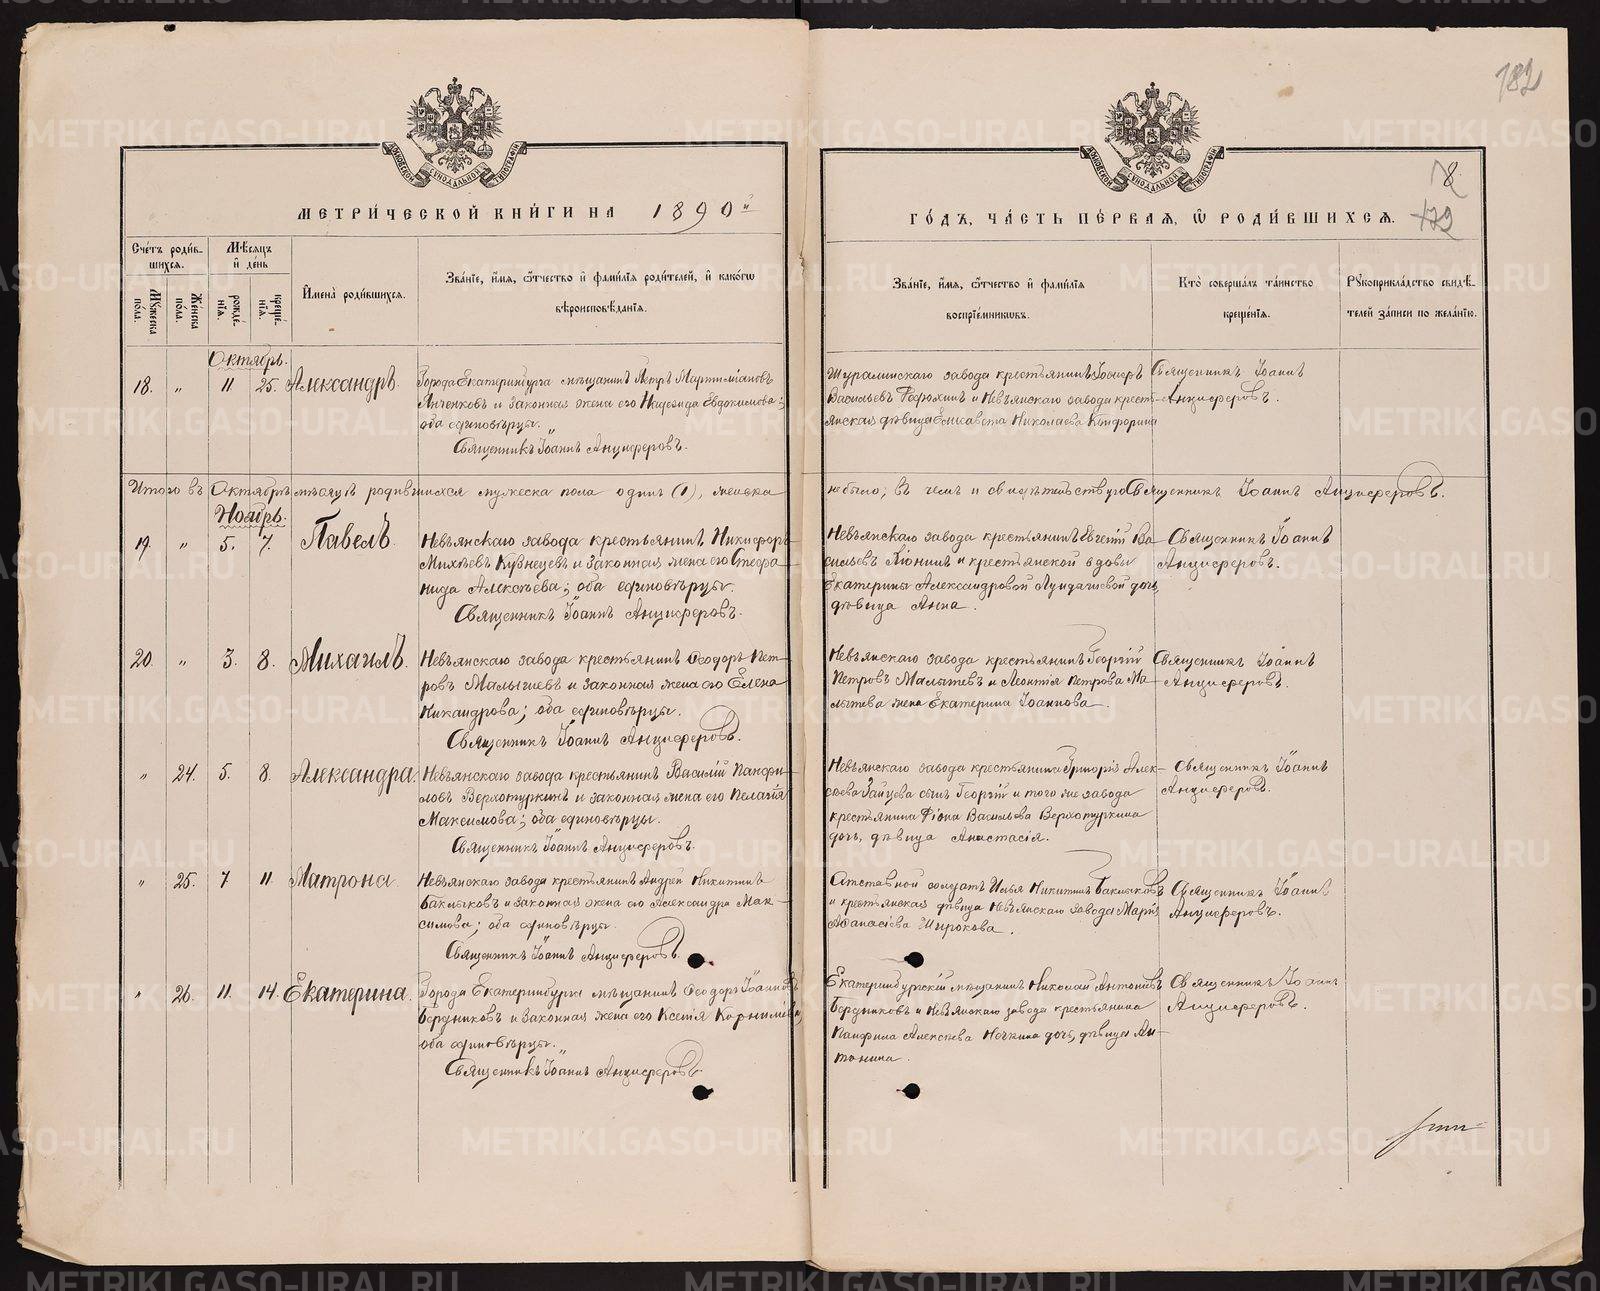 182
8
172
МЕТРИ́ЧЕСКОЙ КНИ́ГИ НА 1890й
ГО́ДЪ, ЧА́СТЬ ПЕ́РВАЯ, Ѡ РОДИ́ВШИХСЯ.
Сче́тъ роди́в-
шихся.
Му́жеска
по́ла.
Же́нска
по́ла.
Мѣ́сяцъ
и де́нь
рожде́-
нїя.
креще́-
нїя.
Имена̀ роди́вшихся.
Зва́нїе, и́мя, ѻ́тчество и фами́лїя роди́телей, и како́гѡ
вѣроисповѣ́данїя.
Зва́нїе, и́мя, ѻ́тчество и фами́лїя
воспрїе́мникѡвъ.
Кто̀ соверша́лъ та́инство
креще́нїя.
Рꙋкоприкла́дство свидѣ́-
телей за́писи по жела́нїю.
Октябрь.
18. " 11 25. Александръ.
Города Екатеринбурга мѣщанинъ Петръ Мартиміановъ
Янченковъ и законная жена его Надежда Евдокимова;
оба единовѣрцы.
Священникъ Іоаннъ Анциферовъ.
Шуралинскаго завода крестьянинъ
Васильевъ и Невьянскаго завода кресть-
янская дѣвица Елисавета Николаева
Священникъ Іоаннъ
Анциферовъ.
Итого въ Октябрѣ мѣсяцѣ родившихся мужеска пола одинъ (1), женска
не было; въ чемъ и свидѣтельствую Священникъ Іоаннъ Анциферовъ.
Ноябрь.
19. " 5. 7. Павелъ
Невьянскаго завода крестьянинъ Никифоръ
Михѣевъ Кузнецевъ и законная жена его Стефа-
нида Алексѣева; оба единовѣрцы.
Священникъ Іоаннъ Анциферовъ.
Невьянскаго завода крестьянинъ Евгеній Ва-
сильевъ и крестьянской вдовы
Екатерины Александровой дочь,
дѣвица Анна.
Священникъ Іоаннъ
Анциферовъ.
20. " 3. 8. Михаилъ.
Невьянскаго завода крестьянинъ Ѳеодоръ Пет-
ровъ Малышевъ и законная жена его Елена
Никандрова; оба единовѣрцы.
Священникъ Іоаннъ Анциферовъ.
Невьянскаго завода крестьянинъ Георгій
Петровъ Малышевъ и Леонтія Петрова Ма-
лышева жена Екатерина Іоаннова.
Священникъ Іоаннъ
Анциферовъ.
" 24. 5. 8. Александра.
Невьянскаго завода крестьянинъ Василій Панфи-
ловъ Верхотуркинъ и законная жена его Пелагія
Максимова; оба единовѣрцы.
Священникъ Іоаннъ Анциферовъ.
Невьянскаго завода крестьянина Григорія Алек-
сѣева Зайцева сынъ Георгій и того же завода
крестьянина Фіона Васильева Верхотуркина
дочь, дѣвица Анастасія.
Священникъ Іоаннъ
Анциферовъ.
" 25. 7 11. Матрона.
Невьянскаго завода крестьянинъ Андрей Никитинъ
Баклыковъ и законная жена его Александра Мак-
симова; оба единовѣрцы.
Священникъ Іоаннъ Анциферовъ.
Отставной солдатъ Илья Никитинъ Баклыковъ
и крестьянская дѣвица Невьянскаго завода Марія
Аѳанасіева Широкова.
Священникъ Іоаннъ
Анциферовъ.
" 26. 11. 14. Екатерина.
Города Екатеринбурга мѣщанинъ Ѳеодоръ Іоанновъ
Бердниковъ и законная жена его Ксенія Корниліева;
оба единовѣрцы.
Священникъ Іоаннъ Анциферовъ.
Екатеринбургскій мѣщанинъ Николай Антоновъ
Бердниковъ и Невьянскаго завода крестьянина
Панфила Алексѣева дочь, дѣвица Ан-
тонина.
Священникъ Іоаннъ
Анциферовъ.
METRIKI.GASO-URAL.RU